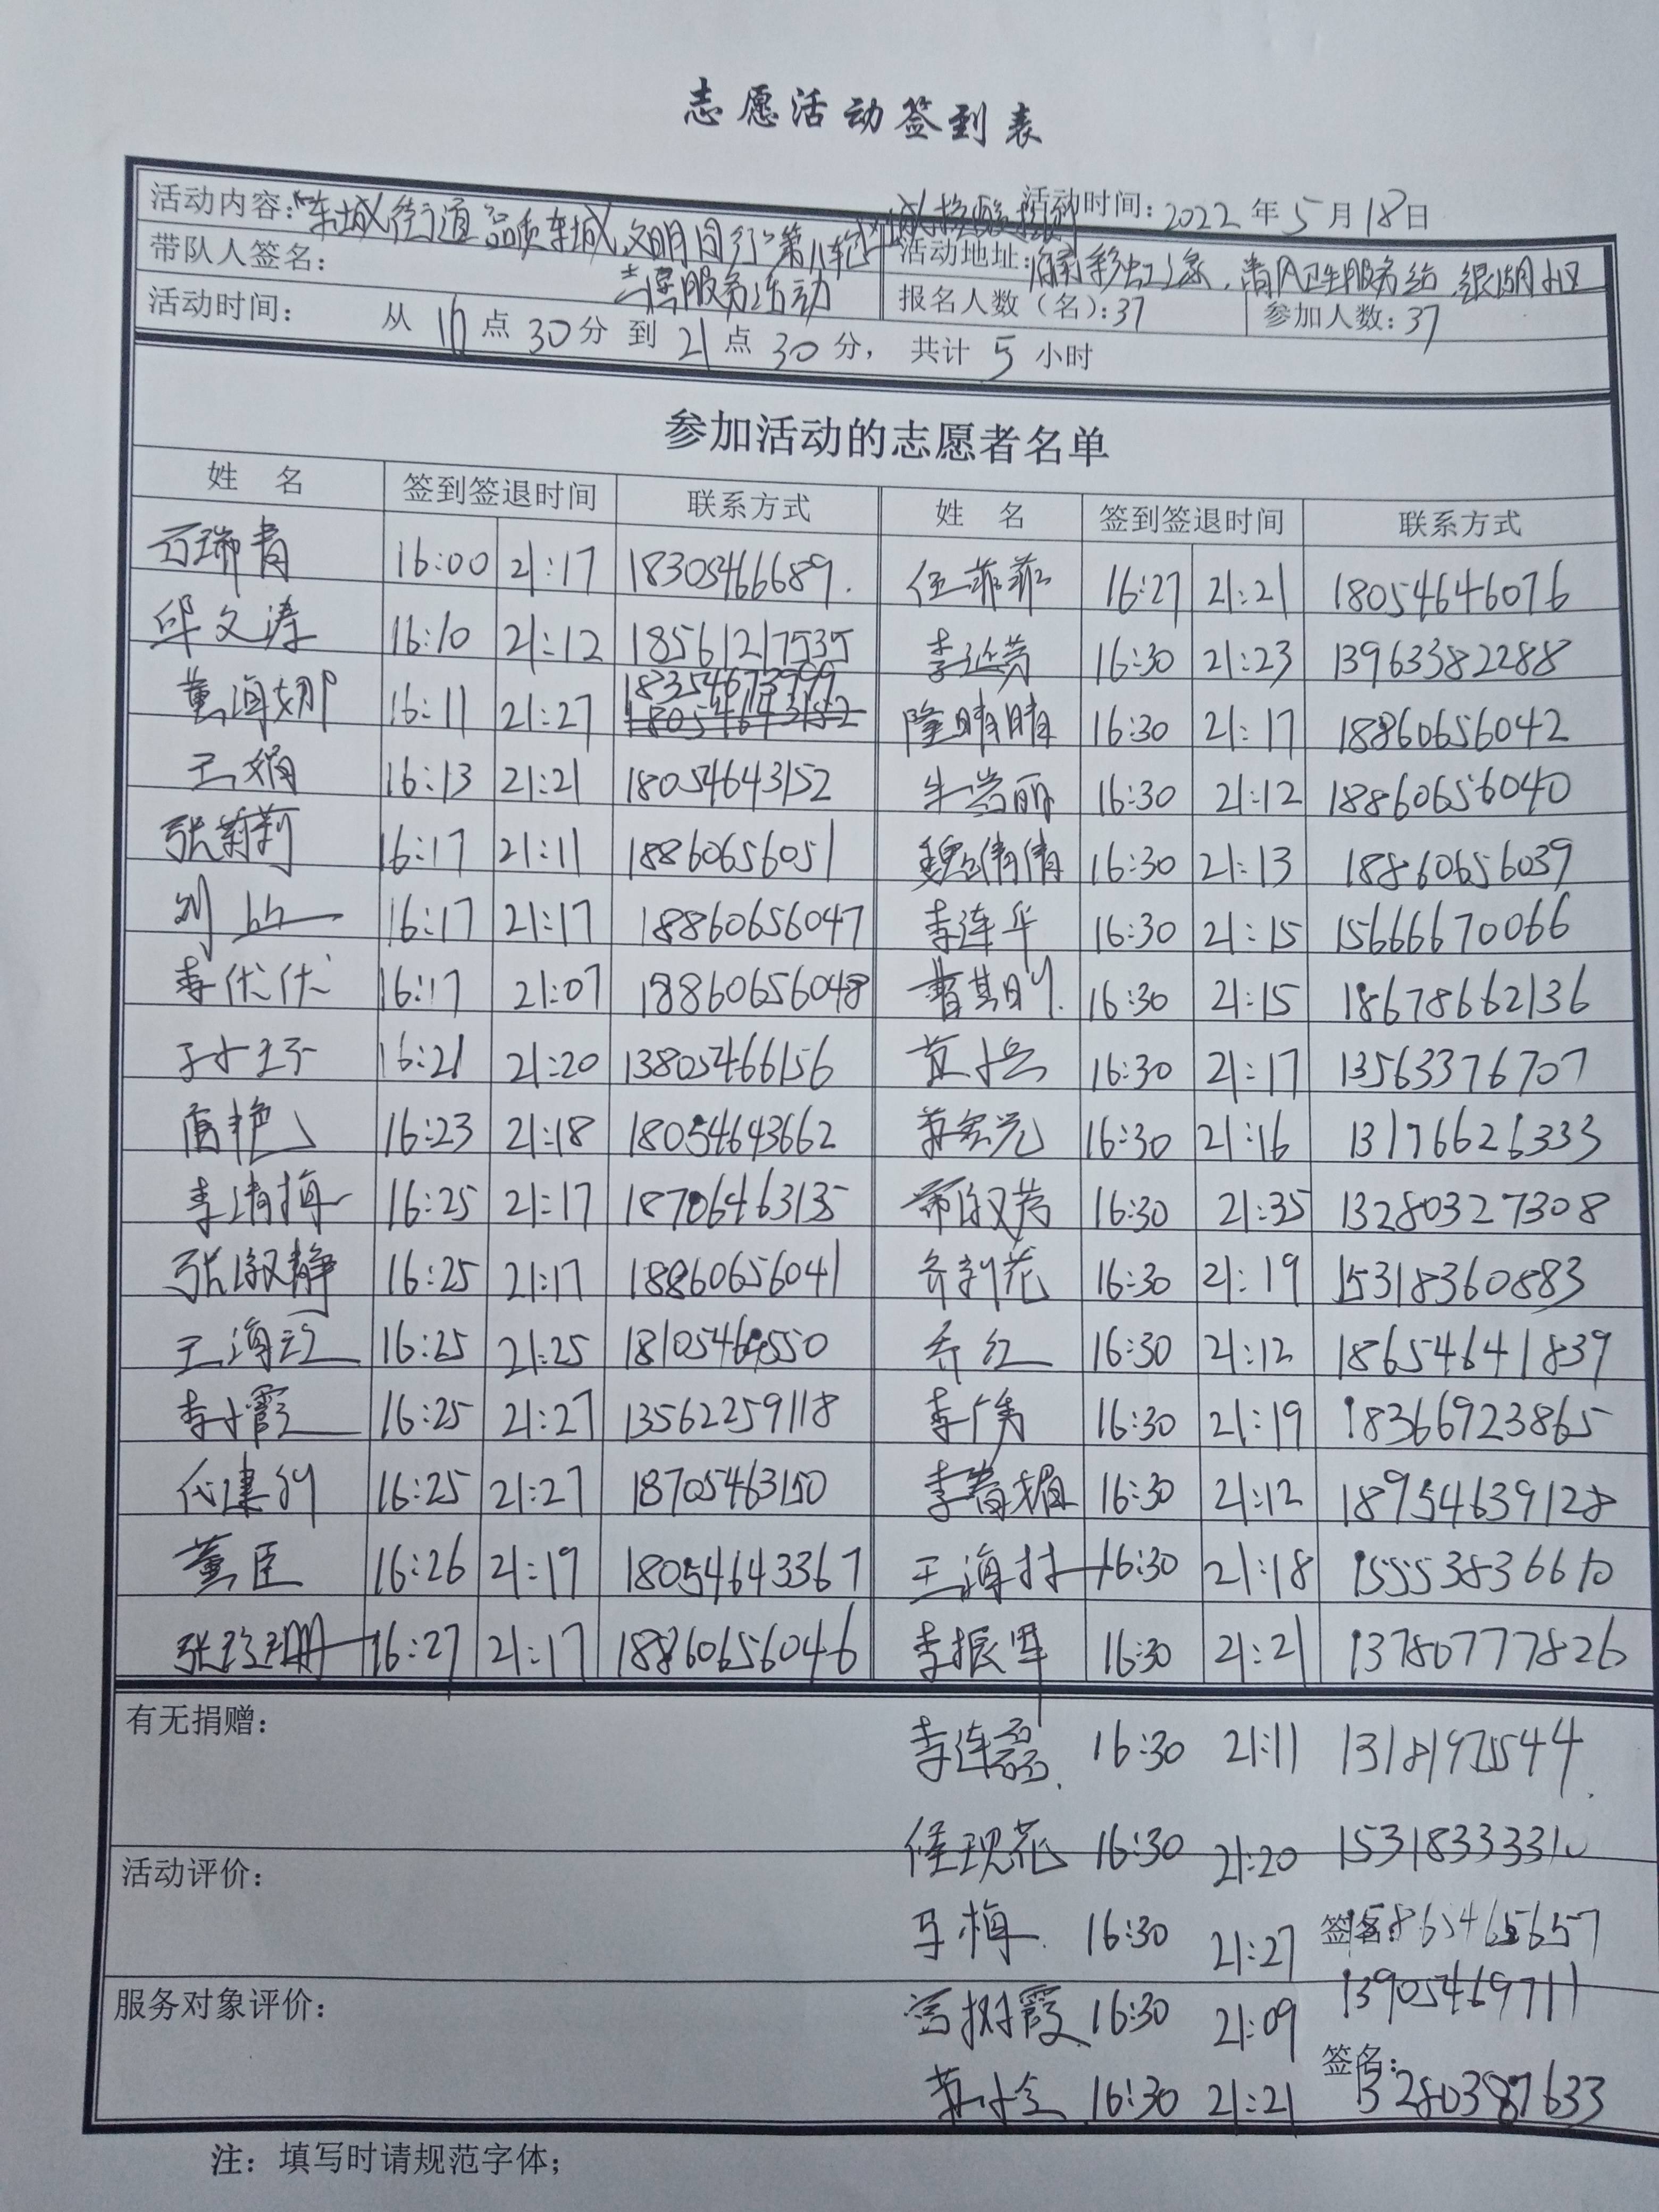 志愿活动签到表
活动内容:"东城街道品质东城,文明同行"第八轮全域核酸检测 活动时间:2022年5月18日
志愿服务活动
带队人签名: 活动地址: 清风卫生服务站.银湖小区
报名人数(名):37 参加人数:37
活动时间: 从16点30分到21点30分, 共计5小时
参加活动的志愿者名单
姓 名 签到签退时间 联系方式 姓 名 签到签退时间 联系方式
瑞青 16:00 21:17 18305466689. 任菲菲 16:27 21:21 18054646076
邱文涛 16:10 21:12 18561217535 李延芳 16:30 21:23 13963382288
董海娜 16:11 21:27 18354673999 隆晴晴 16:30 21:17 18860656042
王娟 16:13 21:21 18054643152 牛岩丽 16:30 21:12 18860656040
张莉莉 16:17 21:11 18860656051 魏倩倩 16:30 21:13 18860656039
刘 16:17 21:17 18860656047 李连华 16:30 21:15 15666670066
李优优 16:17 21:07 18860656048 曹其刚 16:30 21:15 18678662136
孙小珍 16:21 21:20 13805466156 黄小兵 16:30 21:17 13563376707
高艳 16:23 21:18 18054643662 16:30 21:16 13176626333
李清梅 16:25 21:17 18706463135 16:30 21:35 13280327308
张淑静 16:25 21:17 18860656041 齐利花 16:30 21:19 15318360883
王海 16:25 21:25 乔红 16:30 21:12 18654641839
李小霞 16:25 21:27 13562259118 李倩 16:30 21:19 18366923865
代建 16:25 21:27 18705463150 李春楣 16:30 21:12 18954639128
董臣 16:26 21:19 18054643367 王海村 16:30 21:18 15553836610
张珍珊 16:27 21:17 18860656046 李振军 16:30 21:21 13780777826
有无捐赠: 李连磊. 16:30 21:11 13181975544.
侯现花 16:30 21:20 15318333310
活动评价:
马梅. 16:30 21:27 签名: 15865465657
服务对象评价: 树霞 16:30 21:09 13905469711
签名:
16:30 21:21 13280387633
注:填写时请规范字体;